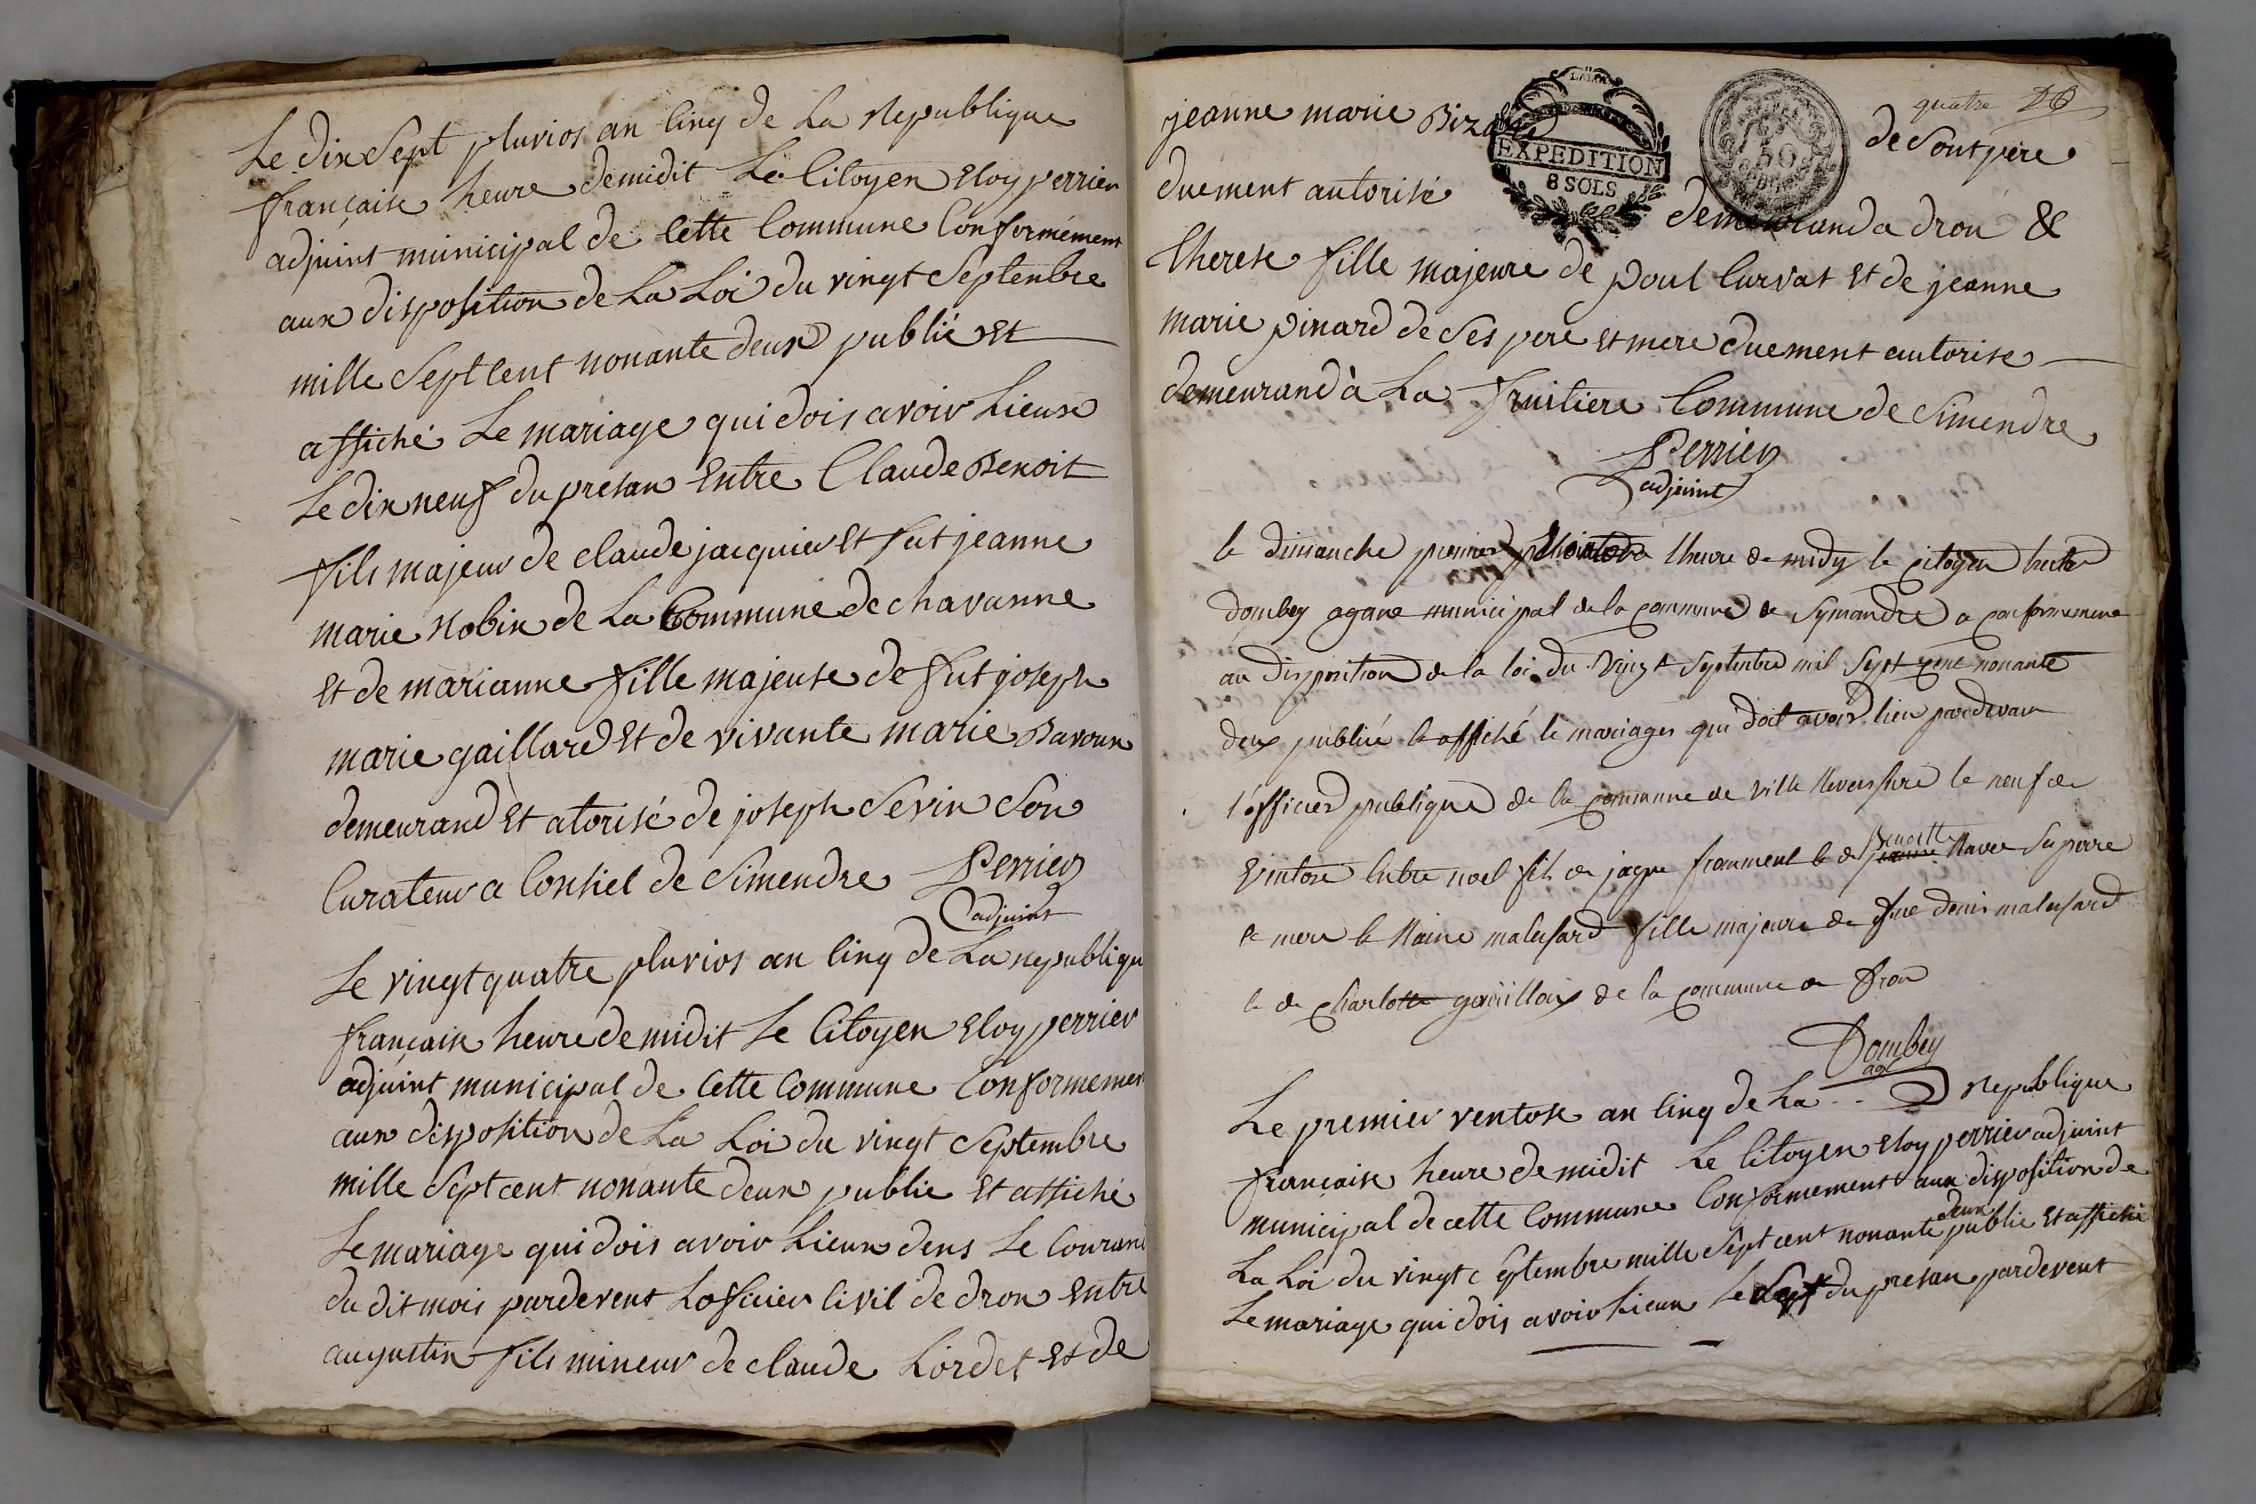 Le dix Sept pluvios an Cinq de La Republique
française heure demidit Le Citoyen Eloy perrier
adjuint municipal de Cette Commune Conformément
aux disposition de La Loi du vingt Septenbre
mille Sept Cent nonante deux publié Et
affiché Le mariage qui dois avoir Lieux
Le dix neuf du presan Entre Claude Benoit
fils majeur de claude jacquier Et fut jeanne
marie Robin de La Commune de chavanne
Et de marianne fille majeuse de fut joseph
marie gaillard Et de vivante marie Bavoux
demeurand Et atorisé de joseph Sevin Son
Curateur a Consiel de Simendre Perrier
adjuint
Le vingt quatre pluvios an Cinq de La republiqu
française heure demidit Le Citoyen Eloy perrier
adjuint municipal de Cette Commune Conformemen
aux disposition de La Loi du vingt Septembre
mille Sept cent nonante deux publie Et affiché
Le mariage qui dois avoir Lieux dens Le Couran
du dit mois pardevent Loficier Civil de dron Entre
augustin fils mineur de claude Lordet Et de
quatre 26
jeanne marie de Sont père
EXPEDITION
8 SOLS
50
duement autorisé demeurand a dron &
therese fille majeure de poul Curvat Et de jeanne
marie pinard de Ses pere Et mere duement autorise
demeurand à La fruitiere Commune de Simendre
Perrier
adjuint
le dimanche premier lheure de midy le citoyen
dombey agane municipal de la commune de Symandre a conformemene
au disposition de la loi du Vingt Septembre mil Sept cent nonante
deux publié & affiché le mariages qui doit avoir lieu pardevan
l'officier publique de la commune de Ville Reversure le neuf de
Vintose Entre noel fils de jaque froment & de Benoitte Ravee Se perre
& mere & Raine malesard fille majeure de fue denis malesard
& de Charlotte gauillou de la commune de dron
Dombey
ag
Le premier ventose an Cinq de La Republique
française heure de midit Le Citoyen Eloy perrier adjuint
municipal de cette Commune Conformement aux disposition de
La Loi du vingt Septembre mille Sept cent nonante deux publie Et affiché
Le mariage qui dois avoir Lieux Le Sept du presan pardevent